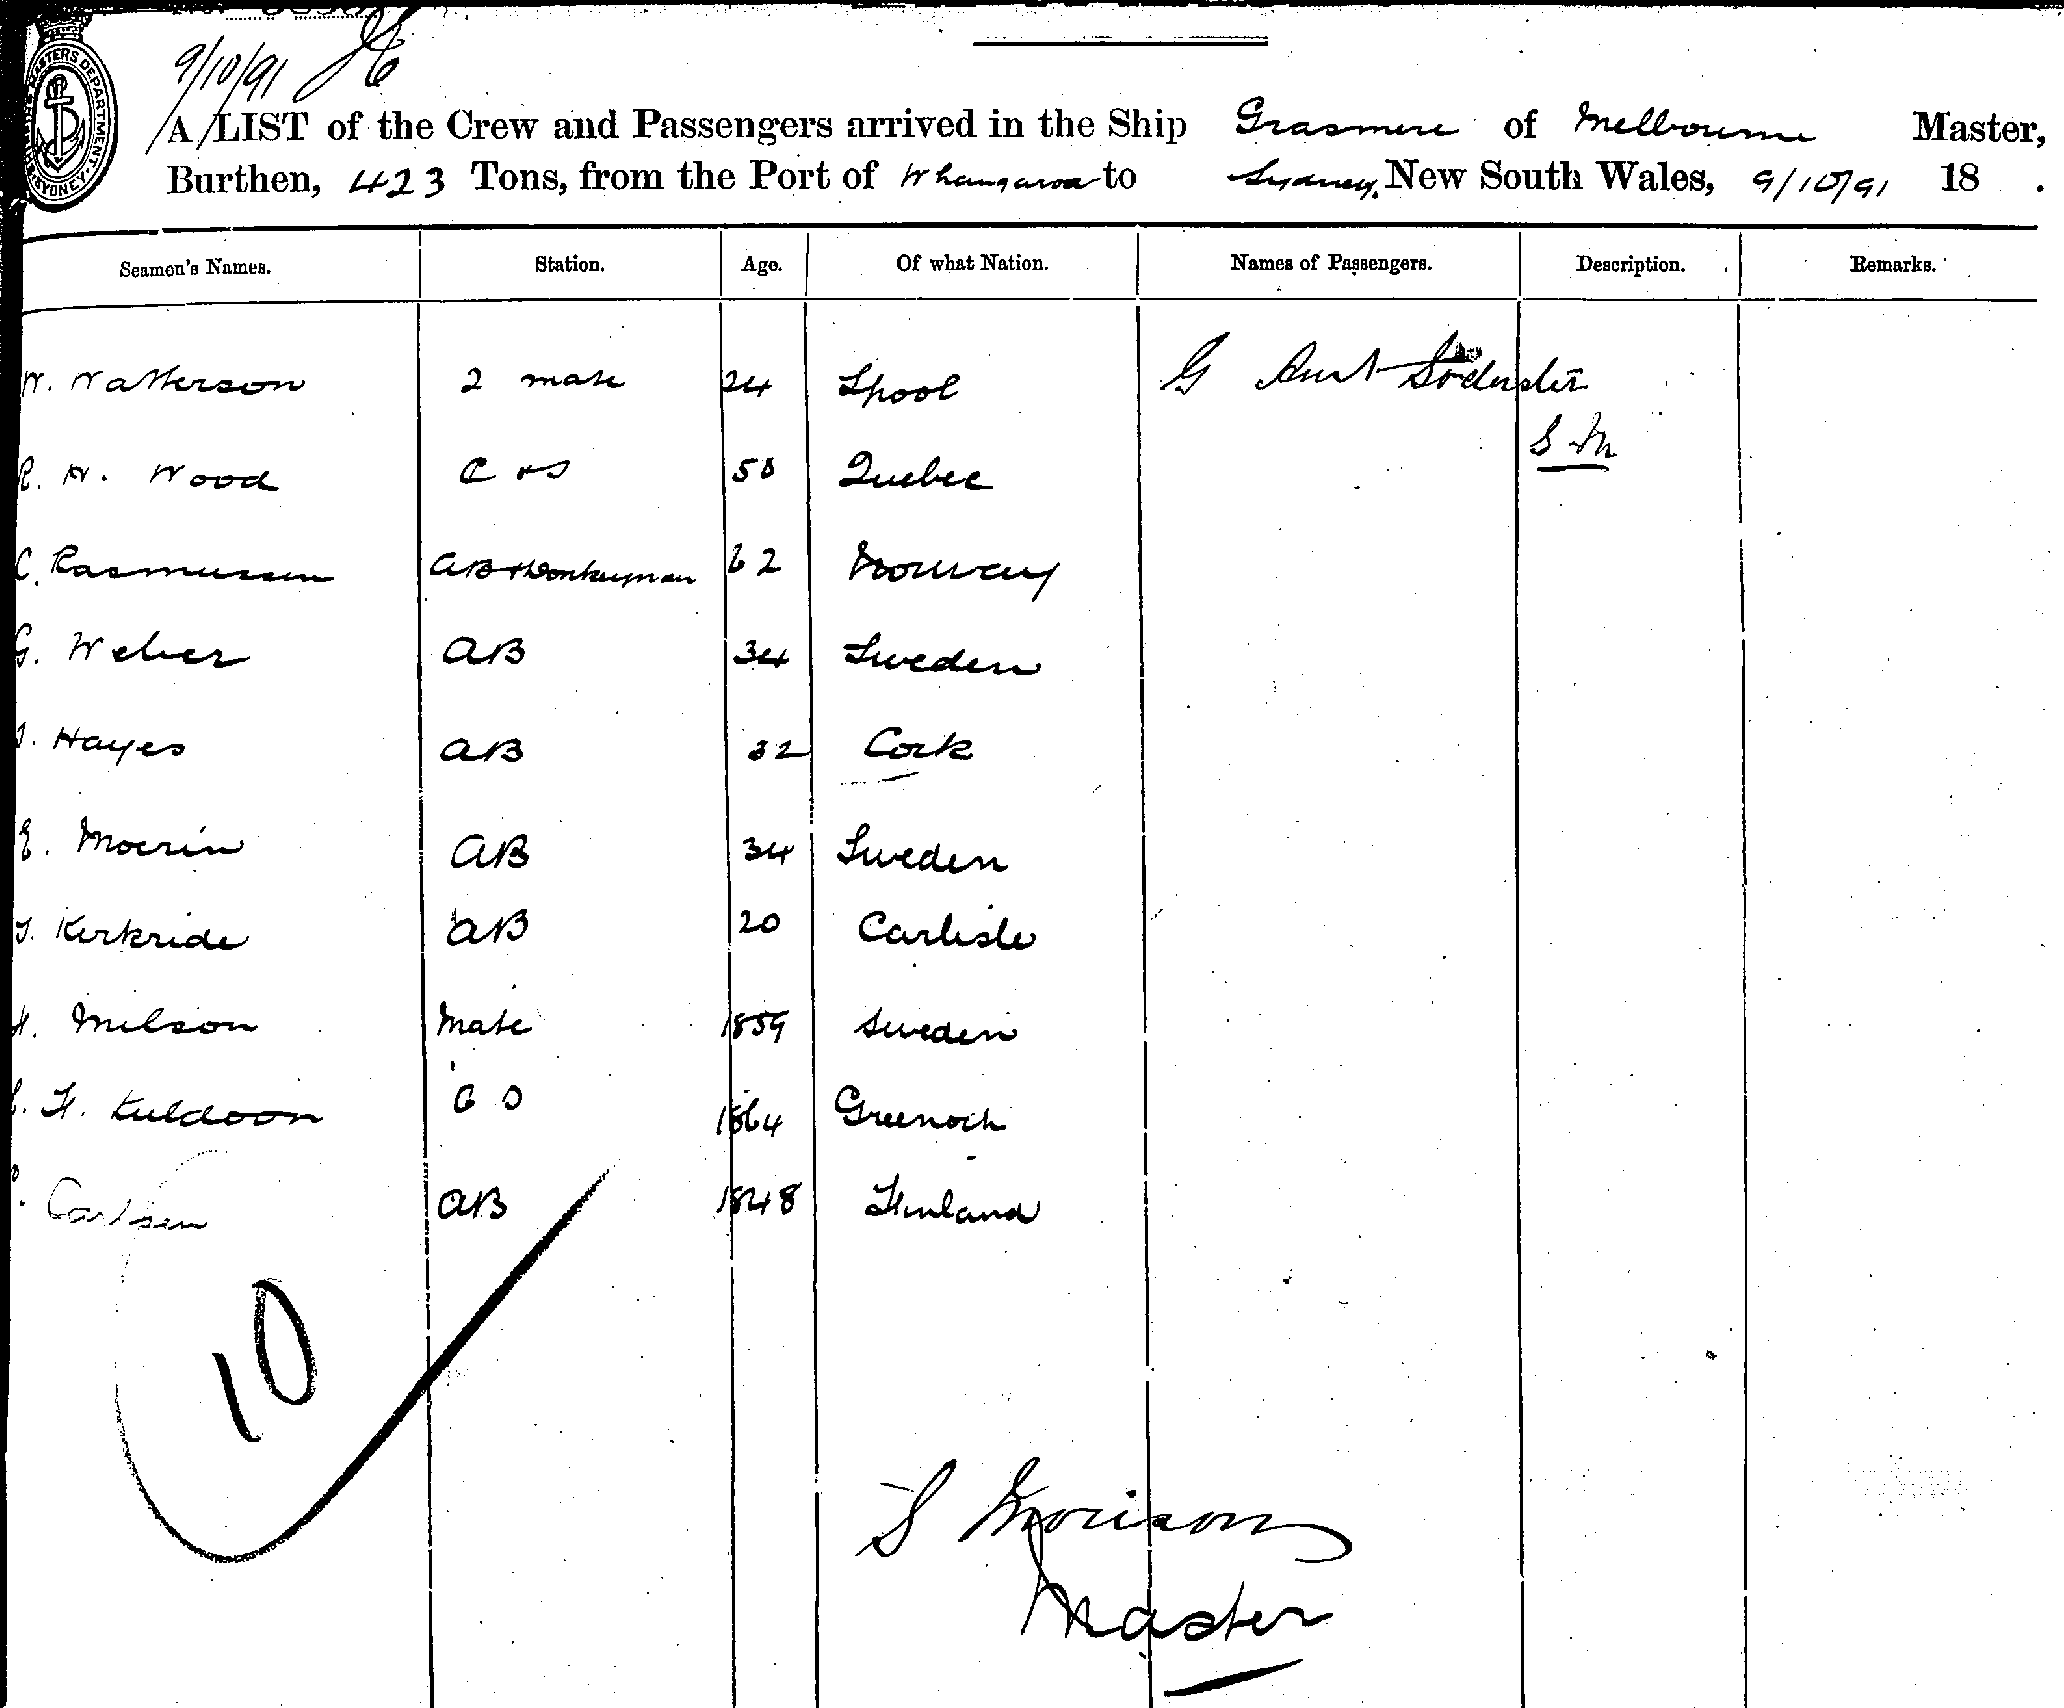 9/10/91
A LIST of the Crew and Passengers arrived in the Ship Grasmere of Melbourne Master,
Burthen, 423 Tons, from the Port of Whangaroa to Sydney. New South Wales, 9/10/91 18 .
Seamen's Names. Station. Age. Of what Nation. Names of Passengers. Description. Remarks.
W. Watterson 2 mate 24 Lpool G
S M
R. H. Wood C & S 50 Quebec
C. Rasmussen AB & Donkeyman 62 Norway
G. Weber AB 34 Sweden
Hayes AB 32 Cork
E. Moerin AB 34 Sweden
Kirkride AB 20 Carlisle
H. Milson Mate 1859 Sweden
H. Kuldoon 1864 Greenock
Carlsen AB 1848 Finland
10
S Morison
Master